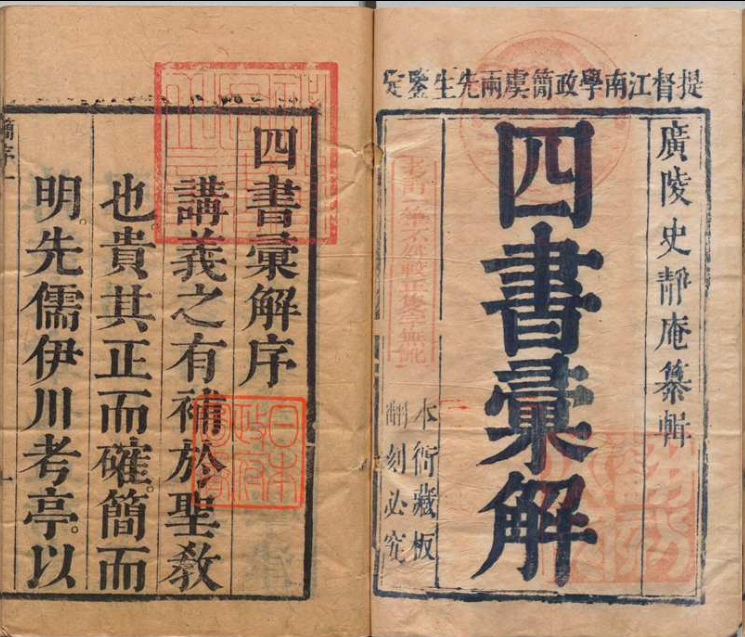 提督江南學政簡虞兩先生鑒定
廣陵史靜庵纂輯
四書彙解
本衙藏板
翻刻必究
四書彙解序
講義之有補於聖教
也貴其正而確。簡而
明。先儒伊川考亭。以
簡序 一
日本
政府
圖書